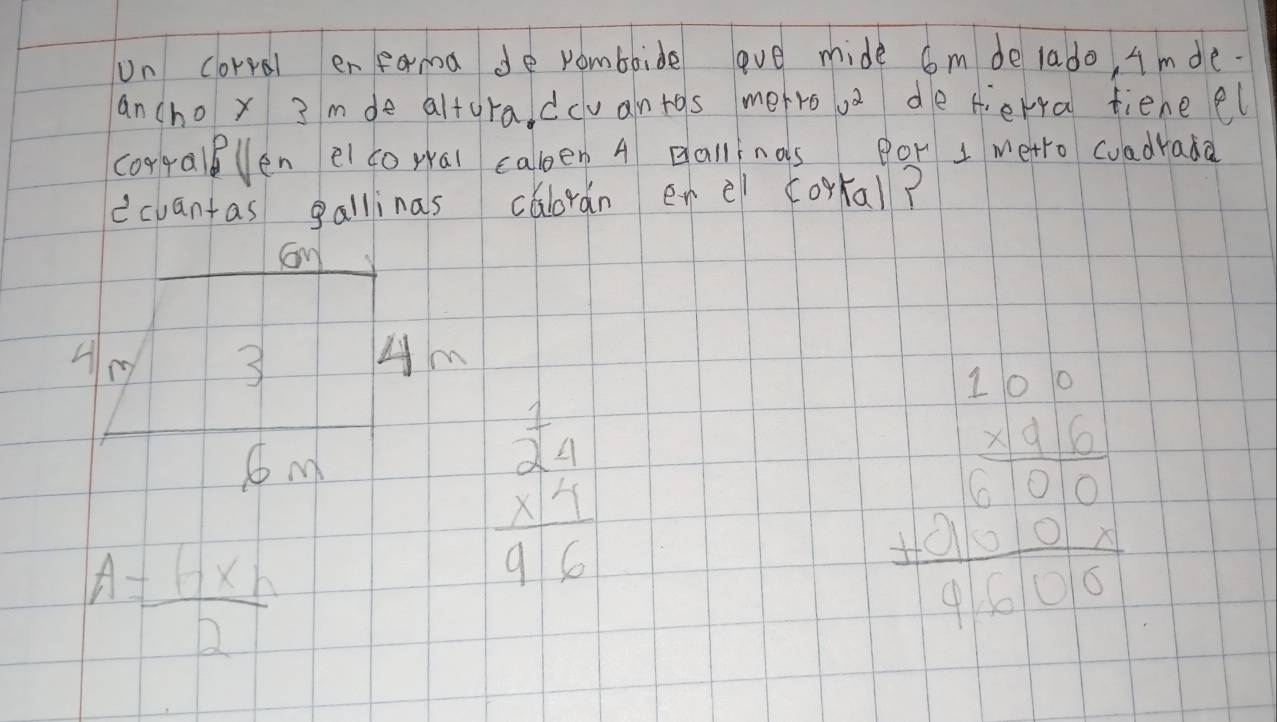 Un corral en forma de romboide que mide 6m de lado, 4 m de-
ancho x 3 m de altura. ¿cuantos metros u² de tierra tiene el
corral? en el corral caben 4 gallinas por 1 metro cuadrado
¿cuantas gallinas cabrán en el corral?
6m
4m 3 4 m
6 m
1
24
x 4
96
100
x 96
600
+900x
9600
A = b x h
2